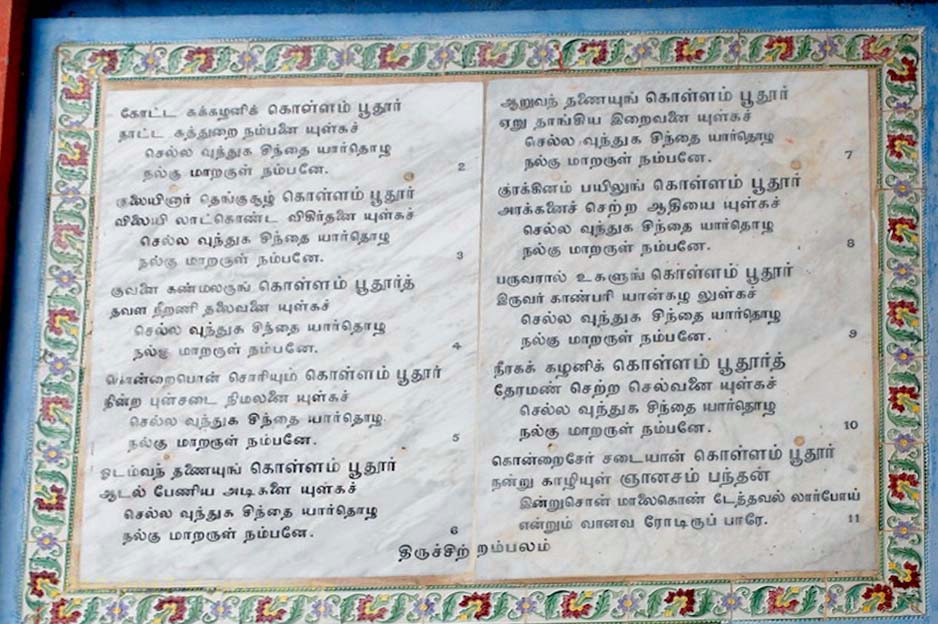 கோட்ட கக்கழனிக் கொள்ளம் பூதூர்
நாட்ட கத்துறை நம்பனை யுள்கச்
செல்ல வுந்துக சிந்தை யார்தொழ
நல்கு மாறருள் நம்பனே. 2
குலையினார் தெங்குசூழ் கொள்ளம் பூதூர்
விலையி லாட்கொண்ட விகிர்தனை யுள்கச்
செல்ல வுந்துக சிந்தை யார்தொழ
நல்கு மாறருள் நம்பனே. 3
குவளை கண்மலருங் கொள்ளம் பூதூர்த்
தவள நீறணி தலைவனை யுள்கச்
செல்ல வுந்துக சிந்தை யார்தொழ
நல்கு மாறருள் நம்பனே. 4
கொன்றைபொன் சொரியும் கொள்ளம் பூதூர்
நின்ற புன்சடை நிமலனை யுள்கச்
செல்ல வுந்துக சிந்தை யார்தொழ
நல்கு மாறருள் நம்பனே. 5
ஓடம்வந் தணையுங் கொள்ளம் பூதூர்
ஆடல் பேணிய அடிகளை யுள்கச்
செல்ல வுந்துக சிந்தை யார்தொழ
நல்கு மாறருள் நம்பனே. 6
ஆறுவந் தணையுங் கொள்ளம் பூதூர்
ஏறு தாங்கிய இறைவனை யுள்கச்
செல்ல வுந்துக சிந்தை யார்தொழ
நல்கு மாறருள் நம்பனே. 7
குரக்கினம் பயிலுங் கொள்ளம் பூதூர்
அரக்கனைச் செற்ற ஆதியை யுள்கச்
செல்ல வுந்துக சிந்தை யார்தொழ
நல்கு மாறருள் நம்பனே. 8
பருவரால் உகளுங் கொள்ளம் பூதூர்
இருவர் காண்பரி யான்கழ லுள்கச்
செல்ல வுந்துக சிந்தை யார்தொழ
நல்கு மாறருள் நம்பனே. 9
நீரகக் கழனிக் கொள்ளம் பூதூர்த்
தேரமண் செற்ற செல்வனை யுள்கச்
செல்ல வுந்துக சிந்தை யார்தொழ
நல்கு மாறருள் நம்பனே. 10
கொன்றைசேர் சடையான் கொள்ளம் பூதூர்
நன்று காழியுள் ஞானசம் பந்தன்
இன்றுசொன் மாலைகொண் டேத்தவல் லார்போய்
என்றும் வானவ ரோடிருப் பாரே. 11
திருச்சிற் றம்பலம்